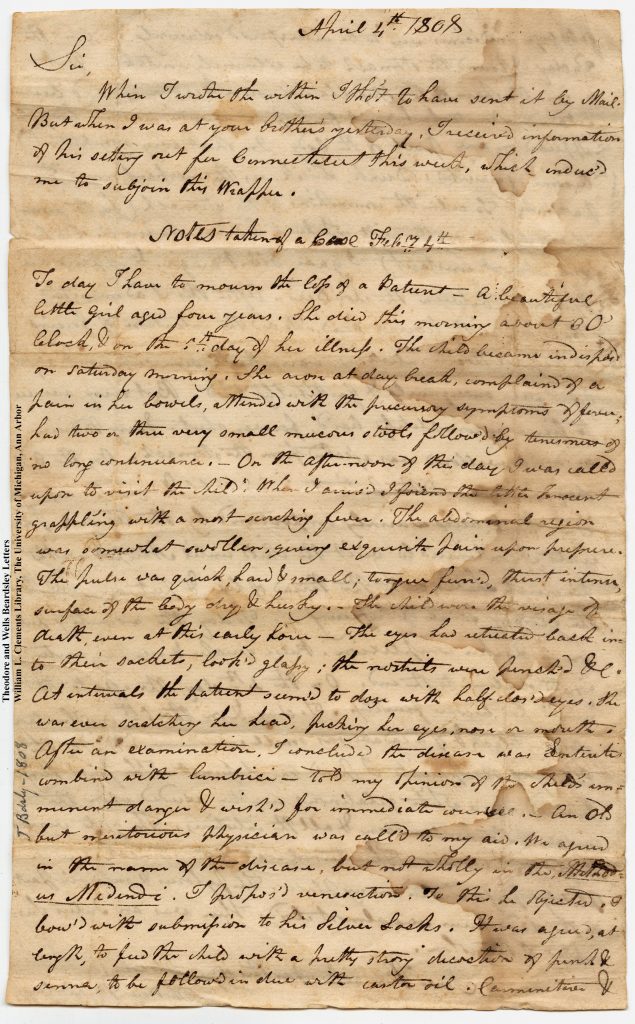 April 4th 1808
Sir,
When I wrote the within I tho't to have sent it by Mail.
But when I was at your brother's yesterday, I received information
of his setting out for Connecticut this week, which induc'd
me to subjoin this Wrapper.
Notes taken of a Case Feby 4th
To day I have to mourn the loss of a Patient — A beautiful
little Girl aged four years. She died this morning about 3 O'
Clock, & on the 5th day of her illness. The child became indispos'd
on saturday morning. She arose at day break, complain'd of a
pain in her bowels, attended with the precursory symptoms of fever;
had two or three very small mucous stools follow'd by tenesmus of
no long continuance. — On the afternoon of this day I was call'd
upon to visit the child. When I arriv'd I found the little Innocent
grappling with a most scorching fever. The abdominal region
was somewhat swollen, giving exquisite pain upon pressure.
The pulse was quick, hard & small; tongue furr'd, thirst intense,
surface of the body dry & husky. — The child wore the visage of
death, even at this early hour — The eyes had retreated back in-
to their sockets, look'd glassy; the nostrils were pinch'd &c.
At intervals the patient seem'd to doze with half clos'd eyes. She
was ever scratching her head, picking her eyes, nose or mouth.
After an examination, I concluded the disease was Enteritis
combin'd with Lumbrici — told my opinion of the Child's im-
minent danger & wish'd for immediate council. — An old
but meritorious physician was call'd to my aid. We agreed
in the name of the disease, but not wholly in the Method-
us Medendi. I propos'd venesection. To this he objected. I
bow'd with submission to his Silver Locks. It was agreed, at
length, to feed the child with a pretty strong decoction of pink &
senna, to be follow'd in due with castor oil. Carminatives &
Theodore and Wells Beardsley Letters
William L. Clements Library, The University of Michigan, Ann Arbor
1808